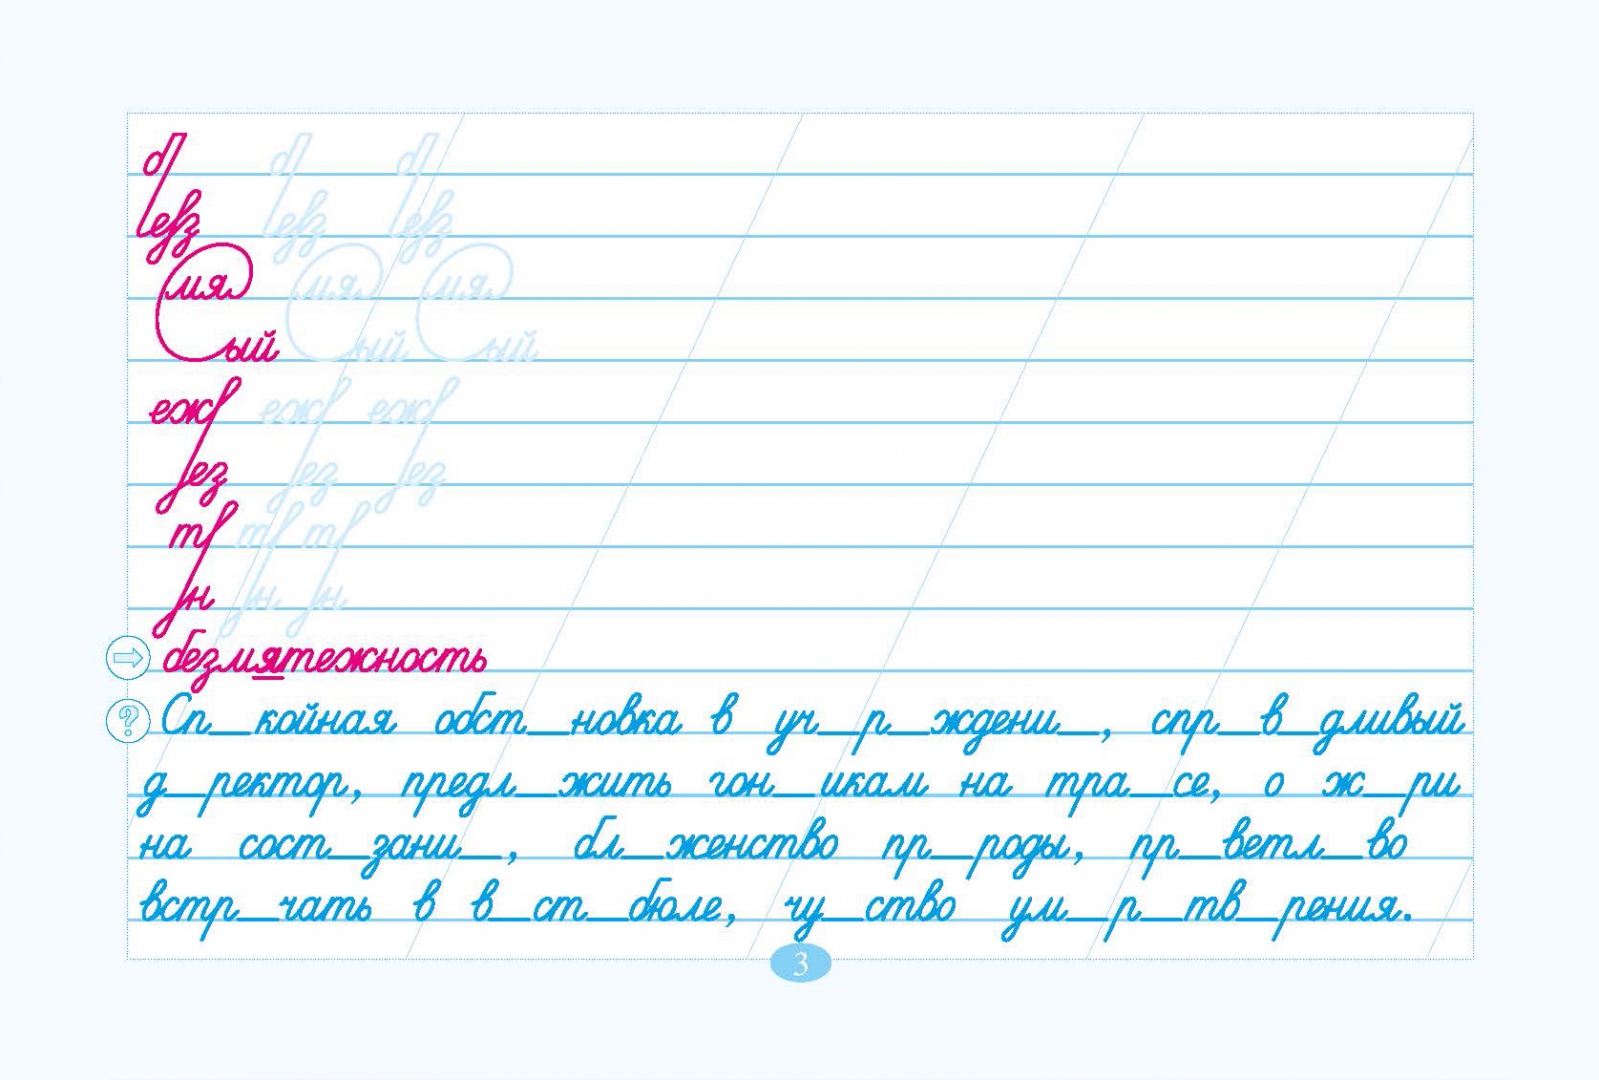 б б б
евз евз евз
мя мя мя
ый ый ый
еж еж еж
ез ез ез
т т т
н н н
безмятежность
Сп_койная обст_новка в уч_р_ждени_, спр_в_дливый
д_ректор, предл_жить гон_икам на тра_се, о ж_ри
на сост_зани_, бл_женство пр_роды, пр_ветл_во
встр_чать в в_ст_бюле, чу_ство ум_р_тв_рения.
3